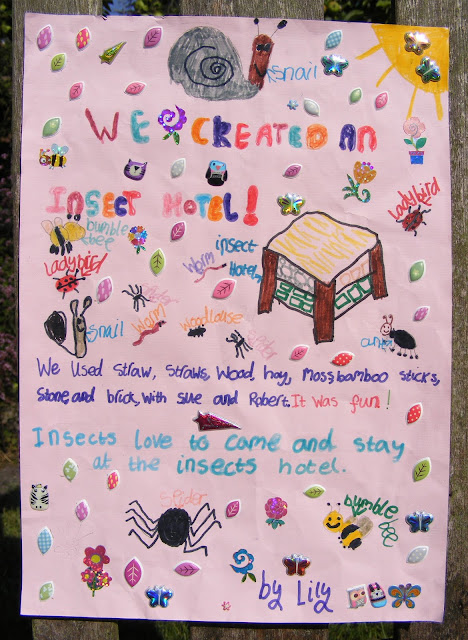 snail
WE CREATED AN
INSECT HOTEL!
ladybird
bumble
bee
insect
Hotel
ladybird
worm
spider
snail
worm
woodlouse
spider
We Used straw, straws, Wood, hay, Moss, bamboo sticks,
Stone, and brick, with sue and Robert. It was fun!
Insects love to come and stay
at the insects hotel.
spider
bumble
bee
by Lily